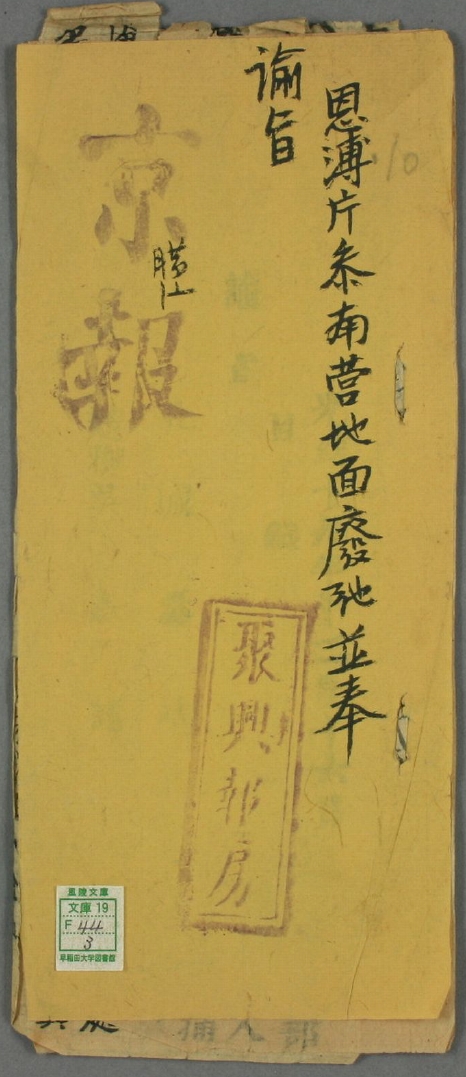 恩溥片奏南营地面廢弛並奉
諭旨
京報
聚興報房
10
風陵文庫
文庫 19
F 44
3
早稲田大学図書館